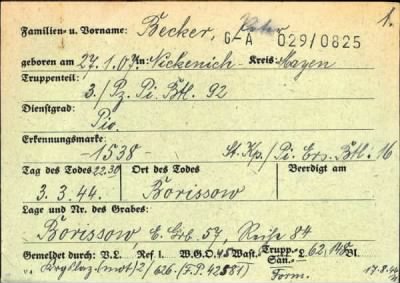 1.
Familien- u. Vorname: Becker, Peter
G-A 029/0825
geboren am 27.1.07 in: Nickenich Kreis: Mayen
Truppenteil:
3./Pz. Pi. Btl. 92
Dienstgrad:
Pio.
Erkennungsmarke:
-1538- St. Kp./Pi. Ers. Btl. 16
Tag des Todes 22.30 Ort des Todes Beerdigt am
3.3.44. Borissow
Lage und Nr. des Grabes:
Borissow, E. Grb. 57, Reihe 84
Gemeldet durch: V.L. Ref. I. W.G.O. 45 Wast. Trupp. San. L. 62, 148 Bl.
(mot) 2/626. (F.P. 42581) Form. 17.8.44